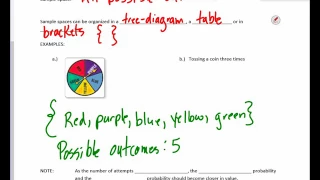 Sample spaces can be organized in a tree-diagram, a table or in
brackets { }
EXAMPLES:
a.)
b.) Tossing a coin three times
{ Red, purple, blue, yellow, green}
Possible outcomes: 5
NOTE: As the number of attempts , the probability
and the probability should become closer in value.